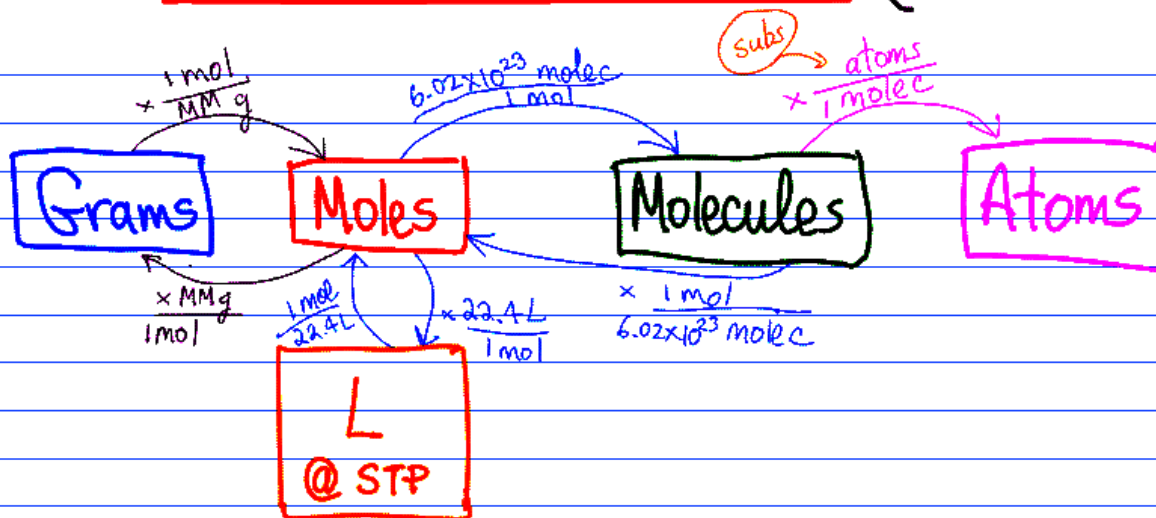 subs
× 1 mol
MM g
6.02×10²³ molec
1 mol
× atoms
1 molec
Grams
Moles
Molecules
Atoms
× MM g
1 mol
1 mol
22.4L
× 22.4 L
1 mol
× 1 mol
6.02×10²³ molec
L
@ STP